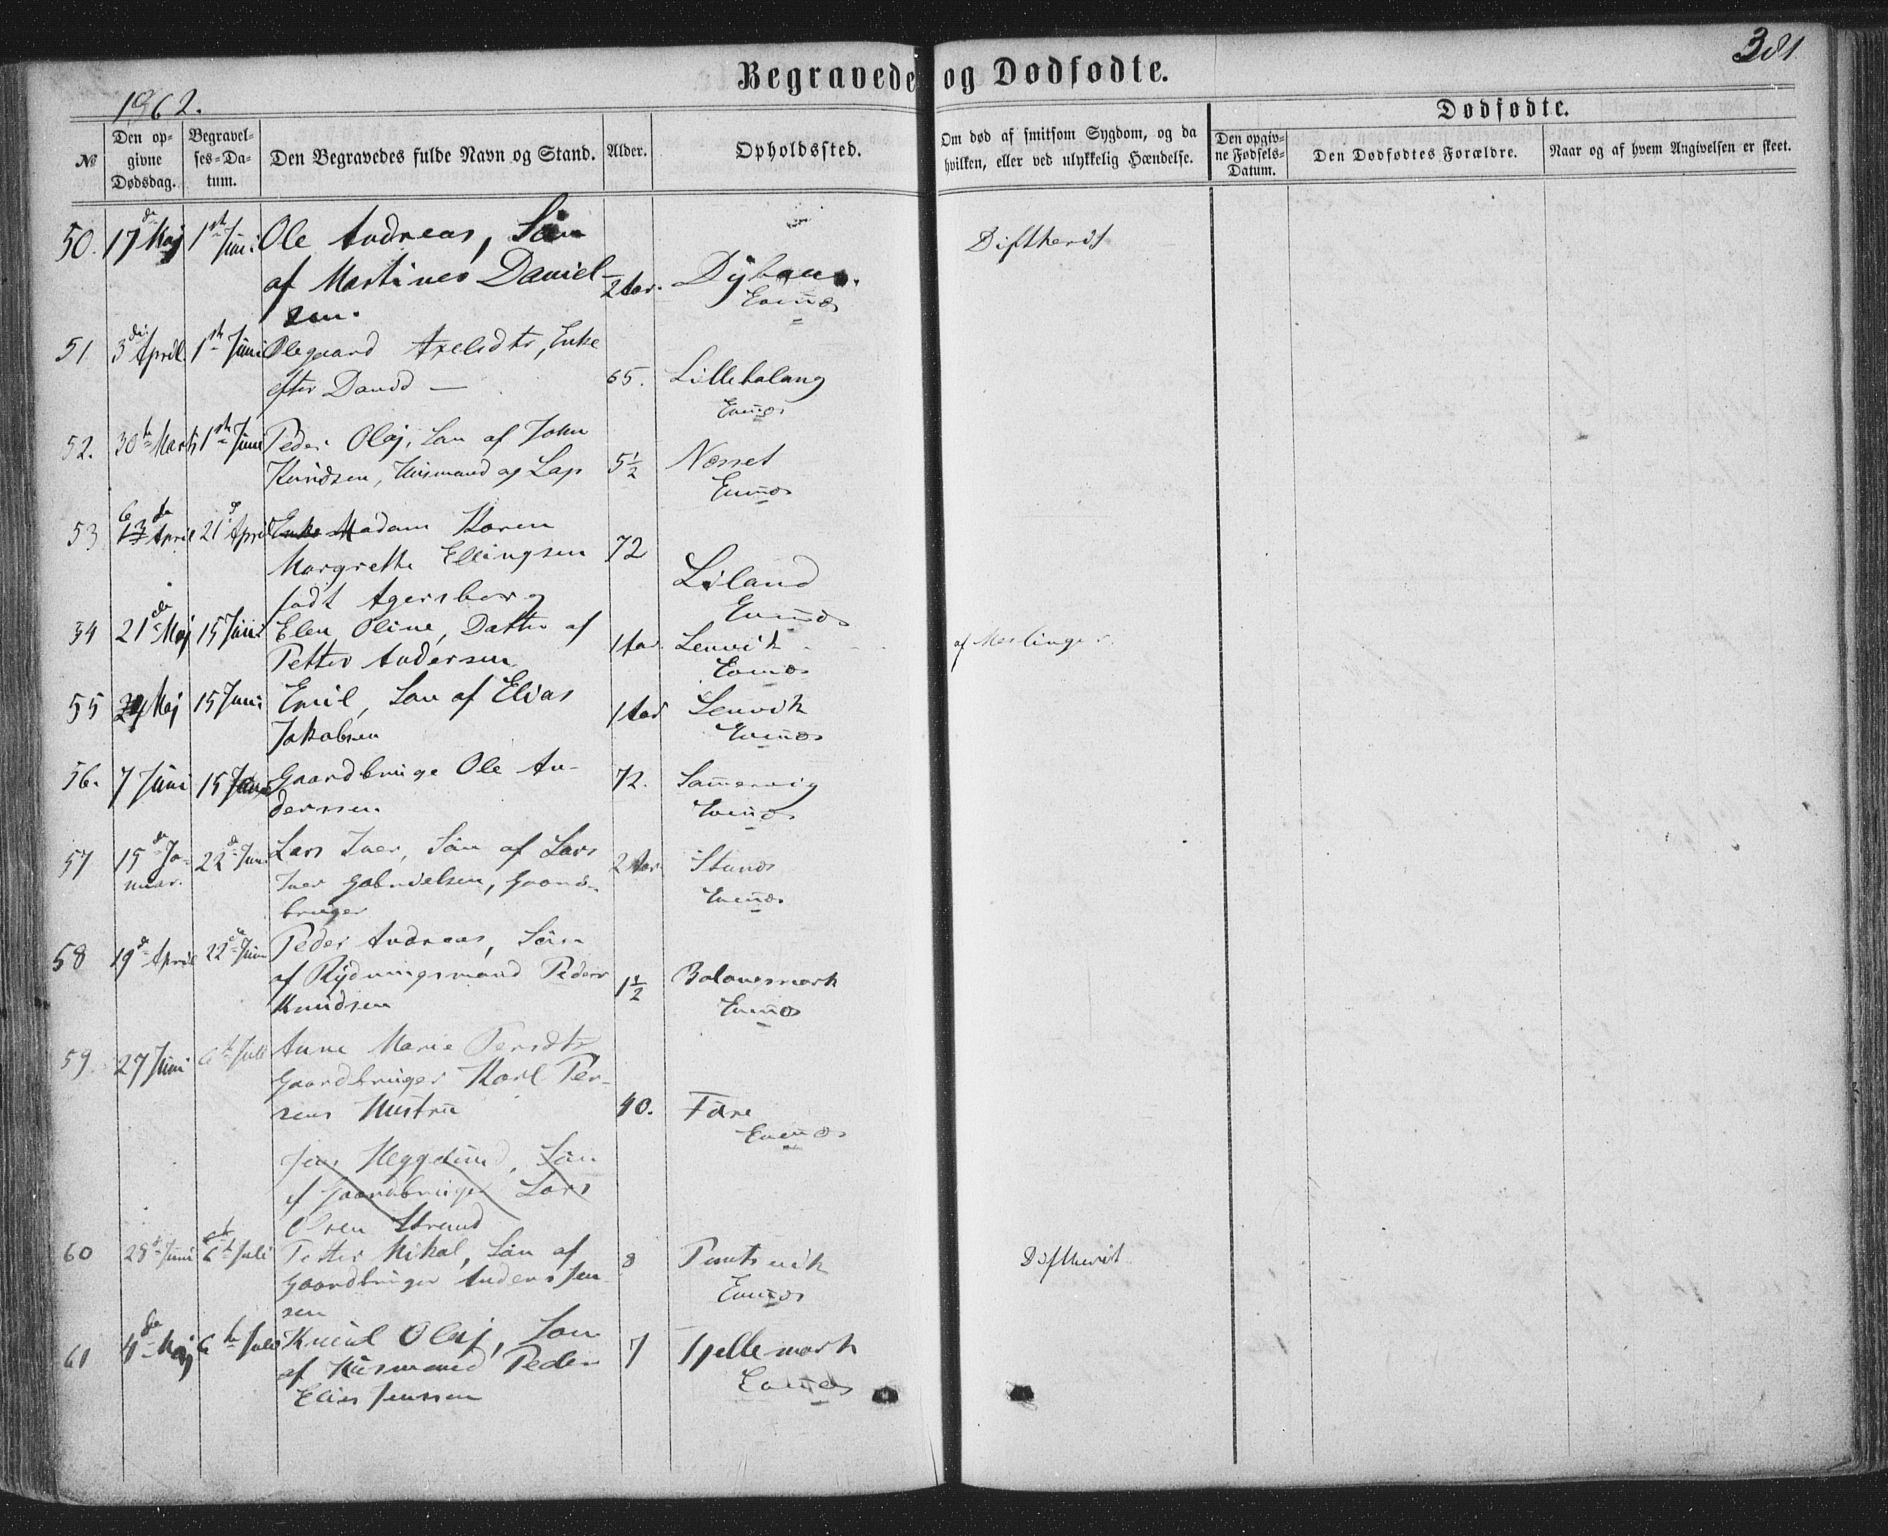 Begravede og Dødfødte.
381.
1862.
Dødfødte.
№
Den op-
givne
Dødsdag.
Begravel-
ses-Da-
tum.
Den Begravedes fulde Navn og Stand.
Alder.
Opholdssted.
Om død af smitsom Sygdom, og da
hvilken, eller ved ulykkelig Hændelse.
Den opgiv-
ne Fødsels-
Datum.
Den Dødfødtes Forældre.
Naar og af hvem Angivelsen er skeet.
50. 17de Maj 1ste Juni Ole Andreas, Søn Diftherit
af Martines Daniel- 2 Aar.
sen. Evenæs
51. 3die April 1ste Juni Olegaard Axelsdtr, Enke
efter David — 65. Lillebalang
Evenæs
52. 30te Marts 1ste Juni Peder Olaj, Søn af John
Knudsen, Husmand og Lap 5½ Næsset
Evenæs
53 6 13de April 21de April Enke Madam Karen
Margrethe Ellingsen 72 Liland
født Agersborg Evenæs
54 21de Maj 15 Juni Elen Oline, Datter af af Meslinger.
Petter Andersen 1 Aar Lenvik
Evenæs
55 24 Maj 15 Juni Emil, Søn af Elias
Jakobsen 1 Aar Lenvik
Evenæs
56. 7 Juni 15 Juni Gaardbruger Ole An-
derssen 72.
Evenæs
57 15de Ja-
nuar. 22de Juni Lars Iver, Søn af Lars
Iver Gabrielsen, Gaard- 2 Aar
bruger Evenæs
58 19de April 22de Juni Peder Andreas, Søn
af Rydningsmand Peder
Knudsen 1½ Balangsmark
Evenæs
59. 27 Juni 6te Juli Anne Marie Persdtr
Gaardbruger Karl Per-
sens Hustru 40. Føre
Evenæs
Jens Heggelund, Søn
af Gaardbruger Lars
Olsen Strand
60 25de Juni 6te Juli Petter Mikal, Søn af 8 Diftherit
Gaardbruger Anders Jen-
sen Evenæs
61 4de Maj 6te Juli Knud Olaj, Søn
af Husmand Peder 7 Tjellemark
Elias Jenssen Evenæs